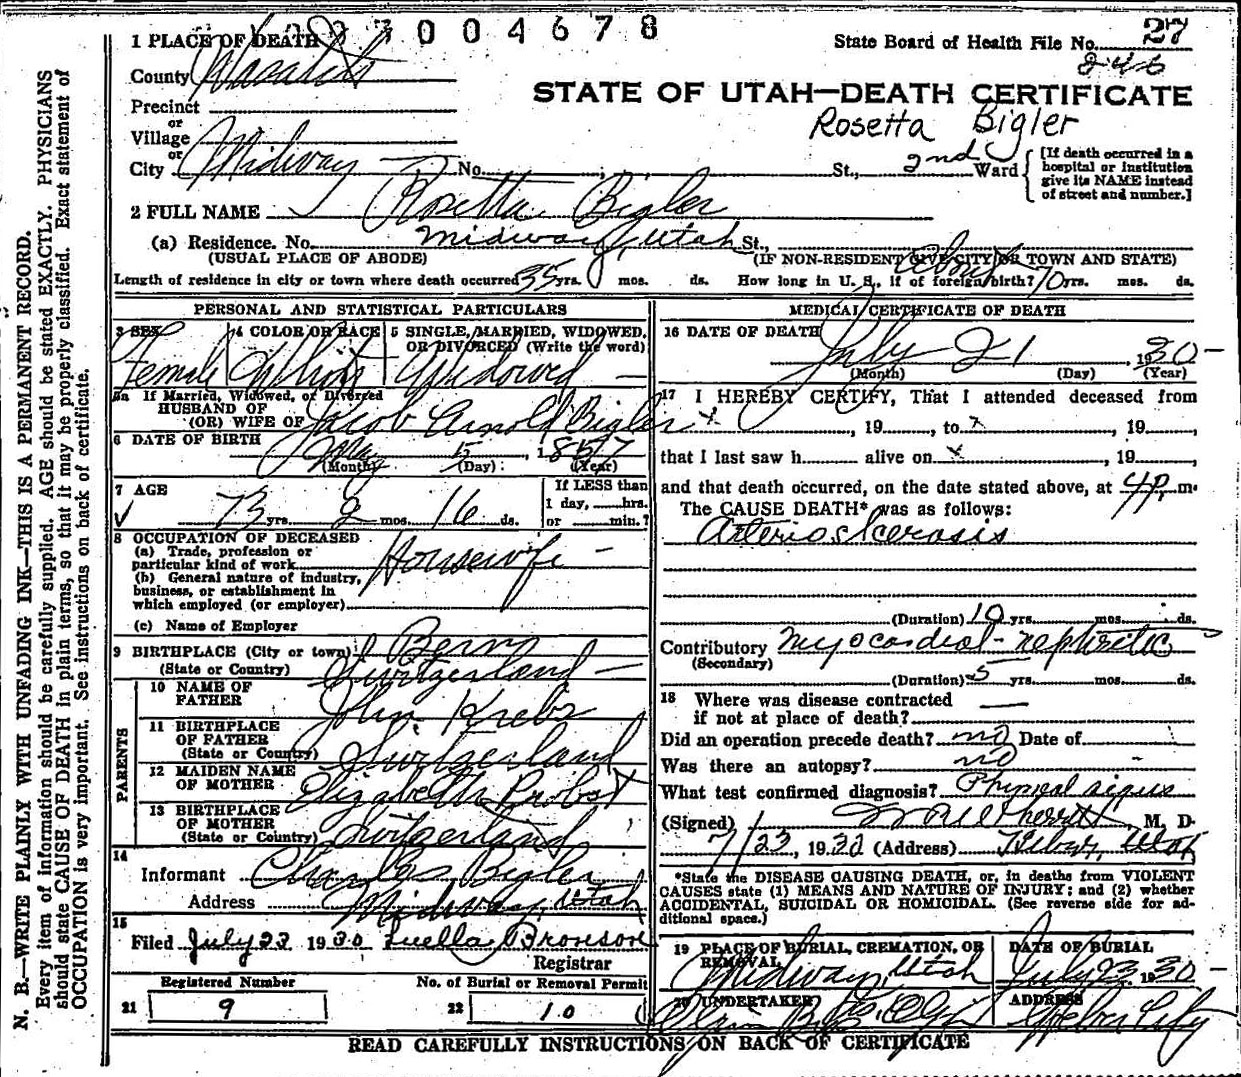 004678
1 PLACE OF DEATH
State Board of Health File No. 27
246
County Wasatch
STATE OF UTAH—DEATH CERTIFICATE
Precinct
Rosetta Bigler
or
Village
or
City Midway No. ; St., 2nd Ward
[If death occurred in a hospital or institution give its NAME instead of street and number.]
2 FULL NAME Rosetta Bigler
(a) Residence. No. Midway, Utah St.,
(USUAL PLACE OF ABODE) (IF NON-RESIDENT GIVE CITY OR TOWN AND STATE)
Length of residence in city or town where death occurred 35 yrs. mos. ds. How long in U. S., if of foreign birth? About 70 yrs. mos. ds.
PERSONAL AND STATISTICAL PARTICULARS
3 SEX 4 COLOR OR RACE 5 SINGLE, MARRIED, WIDOWED, OR DIVORCED (Write the word)
Female White Widowed
5a If Married, Widowed, or Divorced
HUSBAND OF
(OR) WIFE OF Jacob Arnold Bigler
6 DATE OF BIRTH
May 5, 1857
(Month) (Day) (Year)
7 AGE
73 yrs. 2 mos. 16 ds.
If LESS than
1 day, hrs.
or min.?
8 OCCUPATION OF DECEASED
(a) Trade, profession or
particular kind of work Housewife
(b) General nature of industry,
business, or establishment in
which employed (or employer)
(c) Name of Employer
9 BIRTHPLACE (City or town) Bern
(State or Country) Switzerland
PARENTS
10 NAME OF
FATHER John Krebs
11 BIRTHPLACE
OF FATHER
(State or Country) Switzerland
12 MAIDEN NAME
OF MOTHER Elizabeth Probst
13 BIRTHPLACE
OF MOTHER
(State or Country) Switzerland
14
Informant Charles Bigler
Address Midway, Utah
15
Filed July 23 1930 Luella Bronson
Registrar
Registered Number No. of Burial or Removal Permit
21 9 22 10
MEDICAL CERTIFICATE OF DEATH
16 DATE OF DEATH
July 21, 1930
(Month) (Day) (Year)
17 I HEREBY CERTIFY, That I attended deceased from
x , 19 , to x , 19 ,
that I last saw h alive on x , 19 ,
and that death occurred, on the date stated above, at 4P. m.
The CAUSE DEATH* was as follows:
Arteriosclerosis
(Duration) 10 yrs. mos. ds.
Contributory myocardial - nephritic
(Secondary)
(Duration) 5 yrs. mos. ds.
18 Where was disease contracted
if not at place of death?
Did an operation precede death? no Date of
Was there an autopsy? no
What test confirmed diagnosis? Physical signs
(Signed) M. D.
7/23, 1930 (Address) Heber, Utah
*State the DISEASE CAUSING DEATH, or, in deaths from VIOLENT
CAUSES state (1) MEANS AND NATURE OF INJURY; and (2) whether
ACCIDENTAL, SUICIDAL OR HOMICIDAL. (See reverse side for ad-
ditional space.)
19 PLACE OF BURIAL, CREMATION, OR REMOVAL DATE OF BURIAL
Midway, Utah July 23, 1930
20 UNDERTAKER ADDRESS
Heber City
READ CAREFULLY INSTRUCTIONS ON BACK OF CERTIFICATE
N. B.—WRITE PLAINLY WITH UNFADING INK—THIS IS A PERMANENT RECORD.
Every item of information should be carefully supplied. AGE should be stated EXACTLY. PHYSICIANS
should state CAUSE OF DEATH in plain terms, so that it may be properly classified. Exact statement of
OCCUPATION is very important. See instructions on back of certificate.